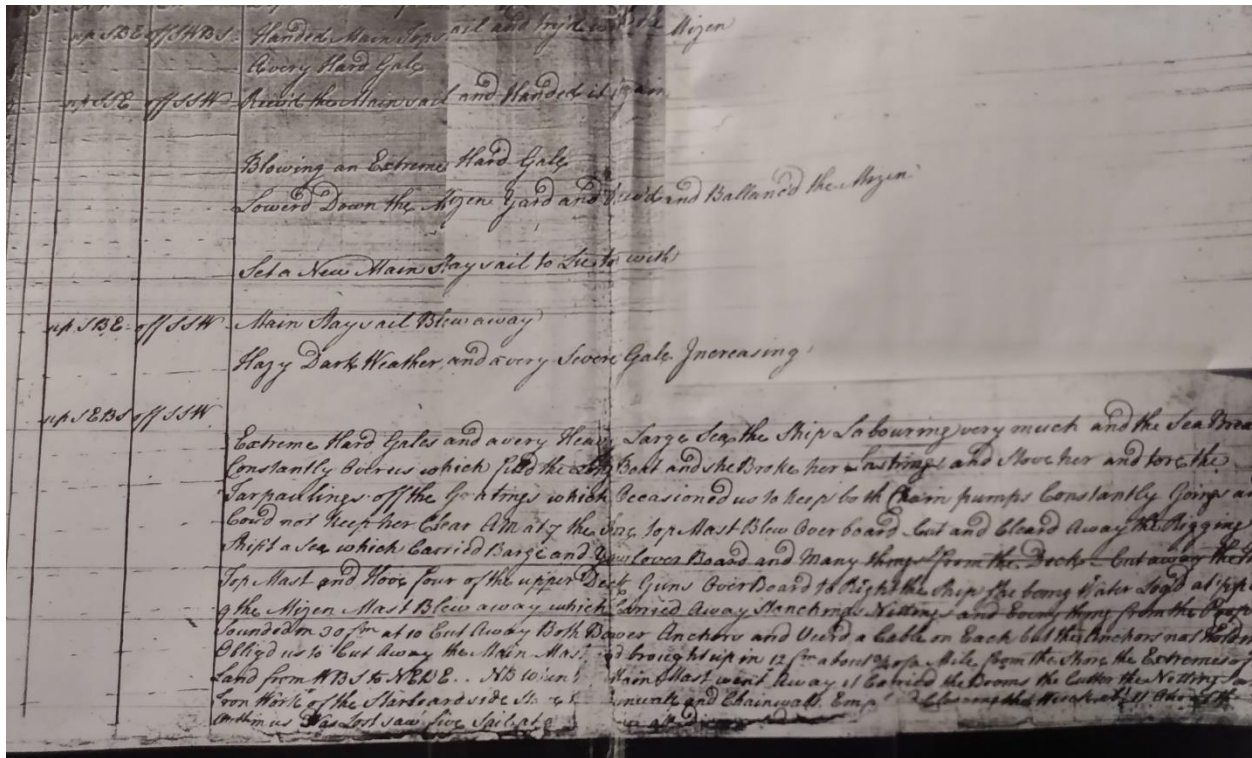 up SBE off SWBS Handed Main Topsail and try'd with Mizen
A very Hard Gale
up SSE off SSW Reev'd the Mainsail and Handed it again
Blowing an Extreme Hard Gale
Lowerd Down the Mizen Yard and and Ballanc'd the Mizen
Set a New Main Stay sail to Lie to with
up SBE off SSW Main Stay sail Blew away
Hazy Dark Weather and a very Severe Gale Increasing
up SEBS off SSW
Extreme Hard Gales and a very Heavy Large Sea, the Ship Labouring very much and the Sea Brea
Constantly Over us which fill'd the Boat and she Broke her Lashings and Stove her and tore the
Tarpaulings off the Gratings which Occasioned us to keep both Chain pumps Constantly Going a
Cou'd not keep her Clear AM at 7 the Top Mast Blew Over board Cut and Cleard Away the Rigging
Ship't a Sea which Carried Barge and Yawl over Board and Many things from the Decks Cut away the
Top Mast and Hove four of the upper Deck Guns Over Board to Right the Ship she being Water Log'd at
9 the Mizen Mast Blew away which Carried Away Stanchings Nettings and Every thing from the Poop
Sounded in 30 fm at 10 Cut Away Both Bower Anchors and Veerd a Cable on Each but the Anchors not Hold
Obligd us to Cut Away the Main Mast and brought up in 12 fm about of a Mile from the Shore the Extremes of
Land from WBS to NEBE NB when Main Mast went Away it Carried the Booms the Cutter the Netting
Iron Work of the Starboard side and Chainwalls Emp'd Clearing the Wreck at 11
saw five Sail at